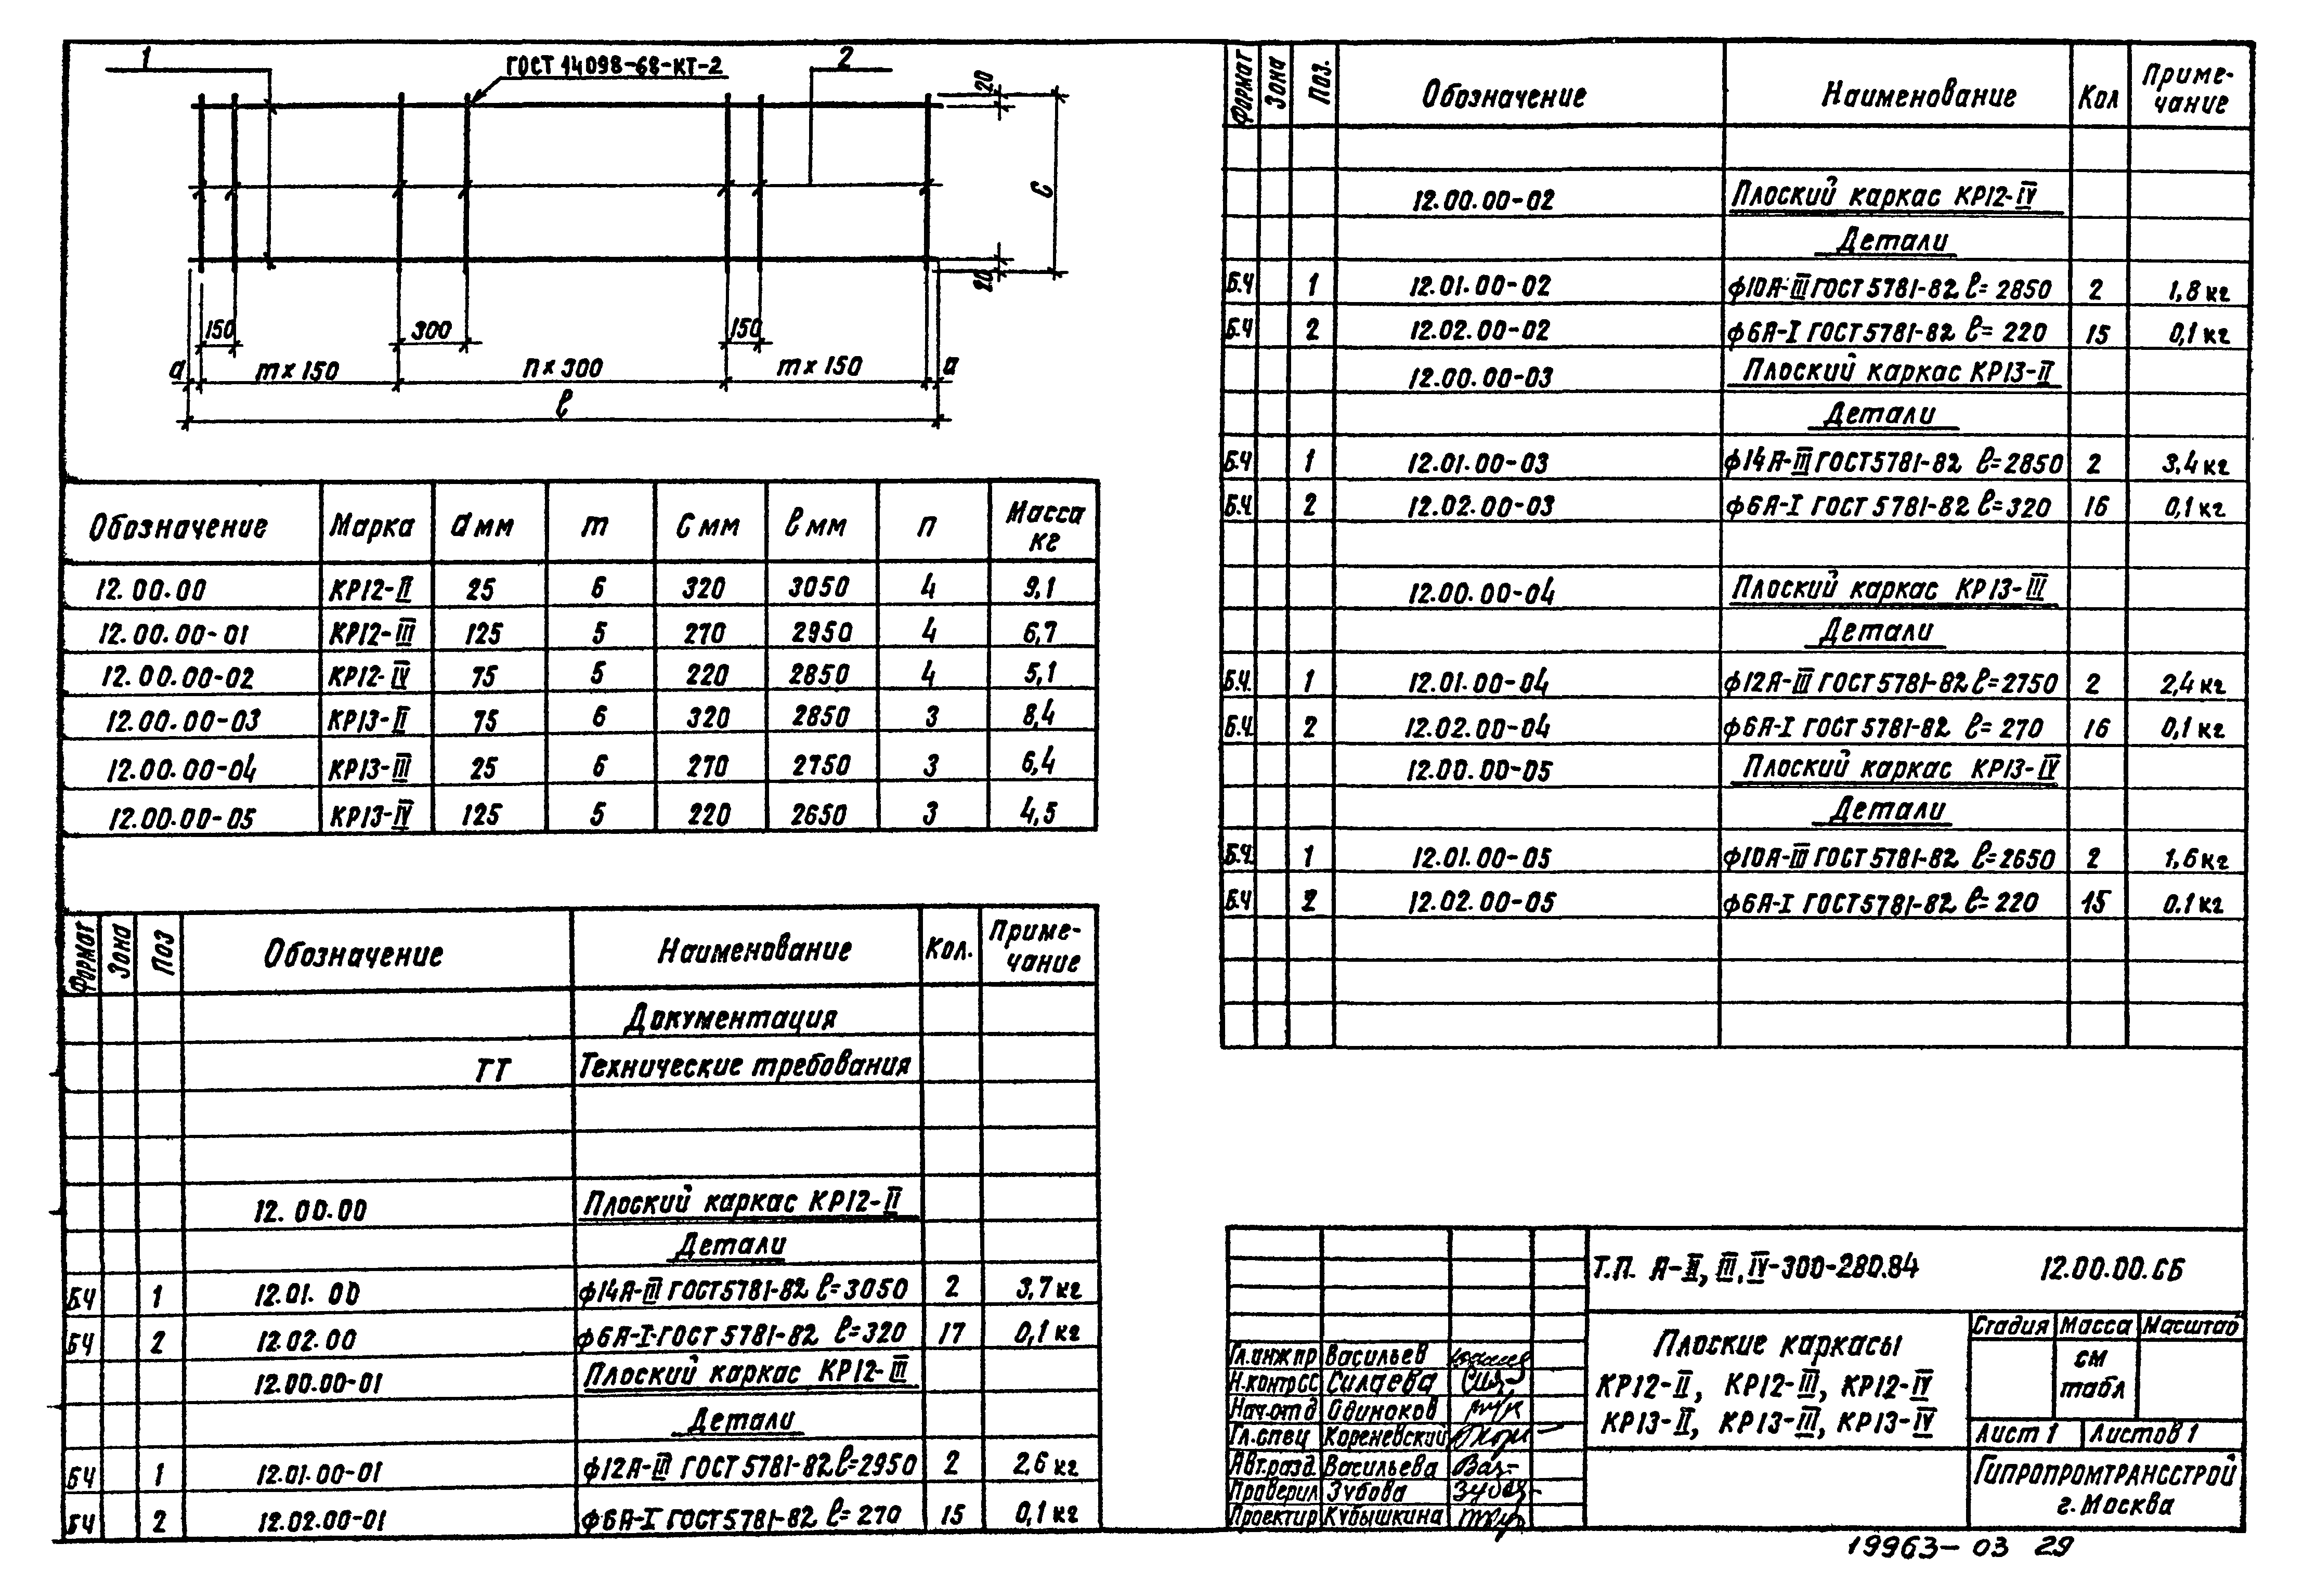 1
ГОСТ 14098-68-КТ-2
2
20
С
20
150
300
150
а
m×150
n×300
m×150
а
ℓ
Обозначение Марка а мм m С мм ℓ мм n Масса кг
12.00.00 КР12-II 25 6 320 3050 4 9,1
12.00.00-01 КР12-III 125 5 270 2950 4 6,7
12.00.00-02 КР12-IV 75 5 220 2850 4 5,1
12.00.00-03 КР13-II 75 6 320 2850 3 8,4
12.00.00-04 КР13-III 25 6 270 2750 3 6,4
12.00.00-05 КР13-IV 125 5 220 2650 3 4,5
Формат Зона Поз Обозначение Наименование Кол. Приме-
чание
Документация
ТТ Технические требования
12.00.00 Плоский каркас КР12-II
Детали
БЧ 1 12.01.00 ф14А-III ГОСТ5781-82 ℓ=3050 2 3,7 кг
БЧ 2 12.02.00 ф6А-I-ГОСТ 5781-82 ℓ=320 17 0,1 кг
12.00.00-01 Плоский каркас КР12-III
Детали
БЧ 1 12.01.00-01 ф12А-III ГОСТ 5781-82 ℓ=2950 2 2,6 кг
БЧ 2 12.02.00-01 ф6А-I ГОСТ5781-82 ℓ=270 15 0,1 кг
Формат Зона Поз. Обозначение Наименование Кол Приме-
чание
12.00.00-02 Плоский каркас КР12-IV
Детали
Б.Ч 1 12.01.00-02 ф10А-III ГОСТ 5781-82 ℓ=2850 2 1,8 кг
Б.Ч 2 12.02.00-02 ф6А-I ГОСТ 5781-82 ℓ=220 15 0,1 кг
12.00.00-03 Плоский каркас КР13-II
Детали
Б.Ч 1 12.01.00-03 ф14А-III ГОСТ5781-82 ℓ=2850 2 3,4 кг
Б.Ч. 2 12.02.00-03 ф6А-I ГОСТ 5781-82 ℓ=320 16 0,1 кг
12.00.00-04 Плоский каркас КР13-III
Детали
Б.Ч. 1 12.01.00-04 ф12А-III ГОСТ5781-82 ℓ=2750 2 2,4 кг
Б.Ч. 2 12.02.00-04 ф6А-I ГОСТ5781-82 ℓ=270 16 0,1 кг
12.00.00-05 Плоский каркас КР13-IV
Детали
Б.Ч. 1 12.01.00-05 ф10А-III ГОСТ5781-82 ℓ=2650 2 1,6 кг
Б.Ч 2 12.02.00-05 ф6А-I ГОСТ5781-82 ℓ=220 15 0.1 кг
Т.П. А-II, III, IV-300-280.84 12.00.00.СБ
Плоские каркасы
КР12-II, КР12-III, КР12-IV
КР13-II, КР13-III, КР13-IV
Стадия Масса Масштаб
см
табл
Лист 1 Листов 1
Гипропромтрансстрой
г. Москва
Гл.инж пр Васильев
Н.контр СС Силаева
Нач.отд Одиноков
Гл.спец Кореневский
Авт.разд. Васильева
Проверил Зубова
Проектир Кубышкина
19963-03 29